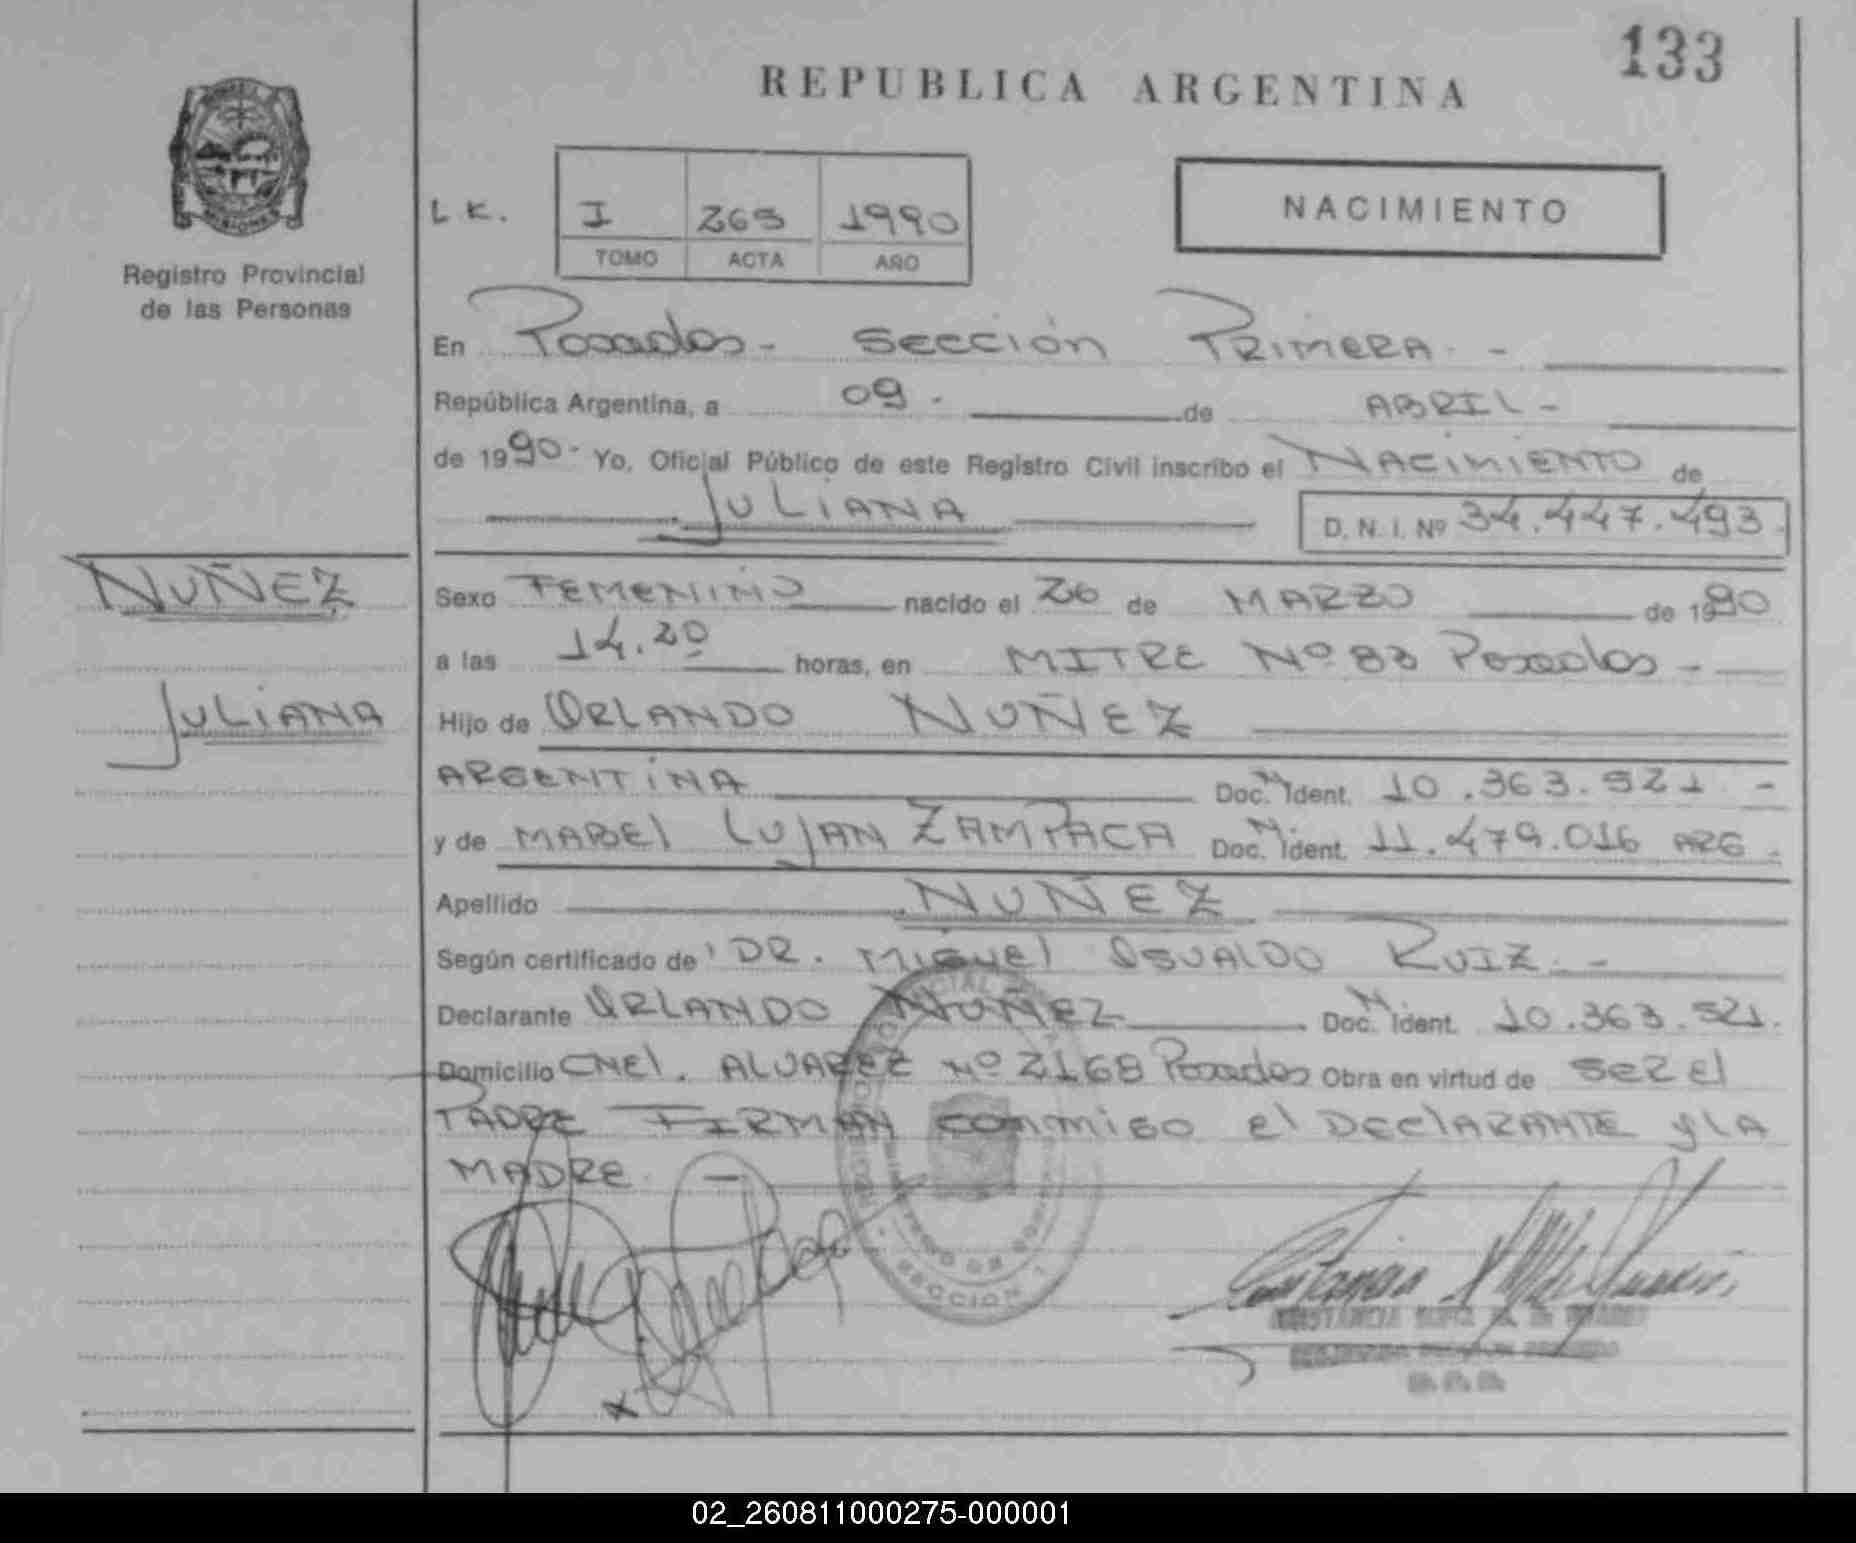 133
REPUBLICA ARGENTINA
Registro Provincial
de las Personas
L.K. I 265 1990
TOMO ACTA AÑO
NACIMIENTO
En Posadas - Sección PRIMERA. -
República Argentina, a 09. de ABRIL -
de 1990- Yo, Oficial Público de este Registro Civil inscribo el NACIMIENTO de
JULIANA D. N. I. Nº 34.447.493.
NUÑEZ
JULIANA
Sexo FEMENINO nacido el 26 de MARZO de 1990
a las 14.20 horas, en MITRE Nº 83 Posadas -
Hijo de ORLANDO NUÑEZ
ARGENTINA Doc. N Ident. 10.363.521 -
y de MABEL LUJAN ZAMPACA Doc. N Ident. 11.479.016 ARG.
Apellido NUÑEZ
Según certificado de DR. MIGUEL OSVALDO RUIZ. -
Declarante ORLANDO NUÑEZ Doc. N Ident. 10.363.521.
Domicilio CNEl. ALVAREZ Nº 2168 Posadas Obra en virtud de SER El
PADRE FIRMAN conmigo el DEClARANTE y LA
MADRE. -
SECCION 1
02_260811000275-000001